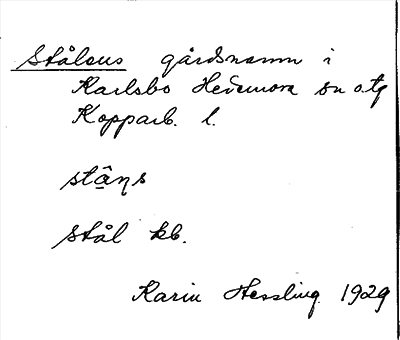 Stålens gårdsnamn i
Karlsbo Hedemora sn o. tg
Kopparb. l.
Stål kb.
Karin Hessling 1929